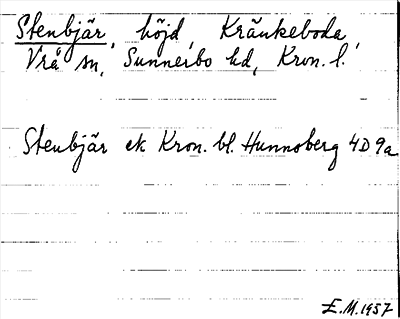 Stenbjär, höjd, Kränkeboda,
Vrå sn, Sunnerbo hd, Kron. l.
Stenbjär ek Kron. bl. Hunnoberg 4D9a
E.M. 1957